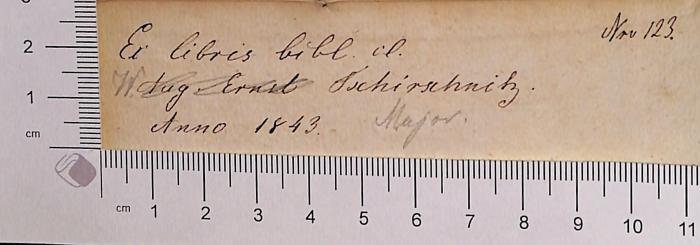 Nro 123.
Ex libris bibl. cl.
W. Aug Ernst Tschirschnitz.
Anno 1843. Major.
2
1
cm
cm 1 2 3 4 5 6 7 8 9 10 11